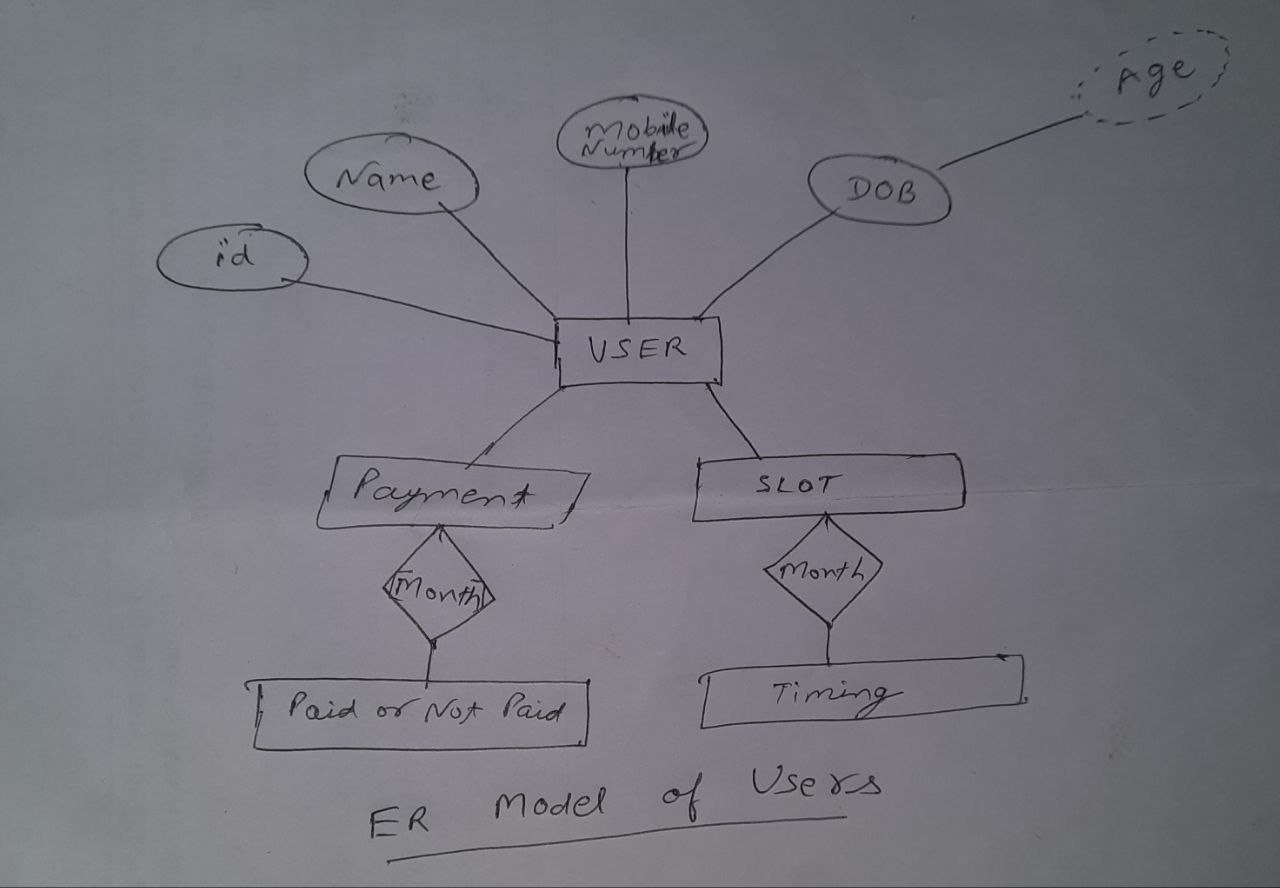 Age
Mobile
Number
Name
DOB
id
USER
Payment
SLOT
Month
Month
Paid or Not Paid
Timing
ER Model of Users